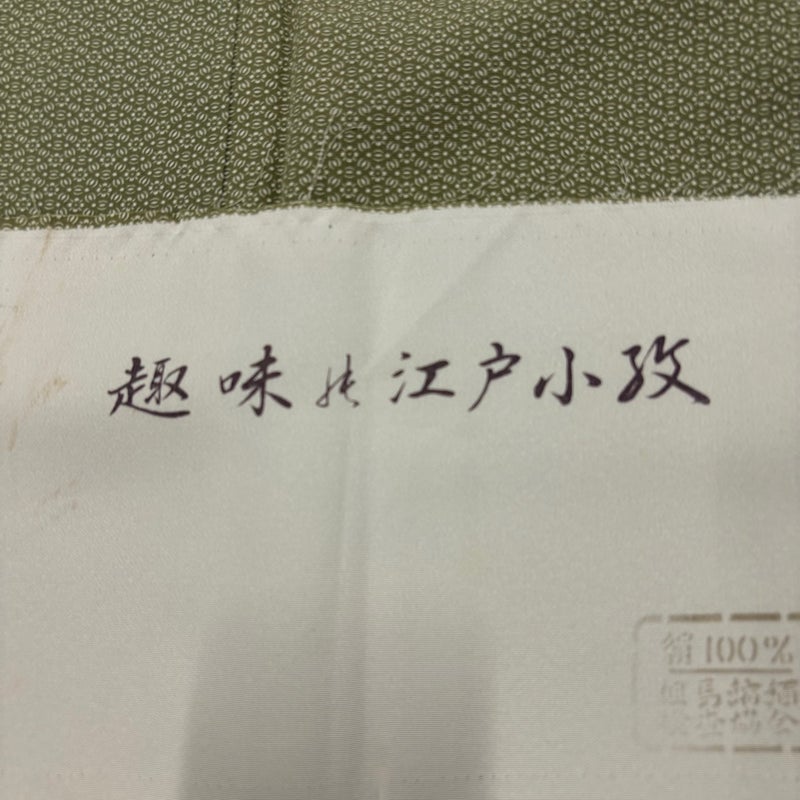 趣味の江戸小紋
絹100%
但馬縮緬
検査協会